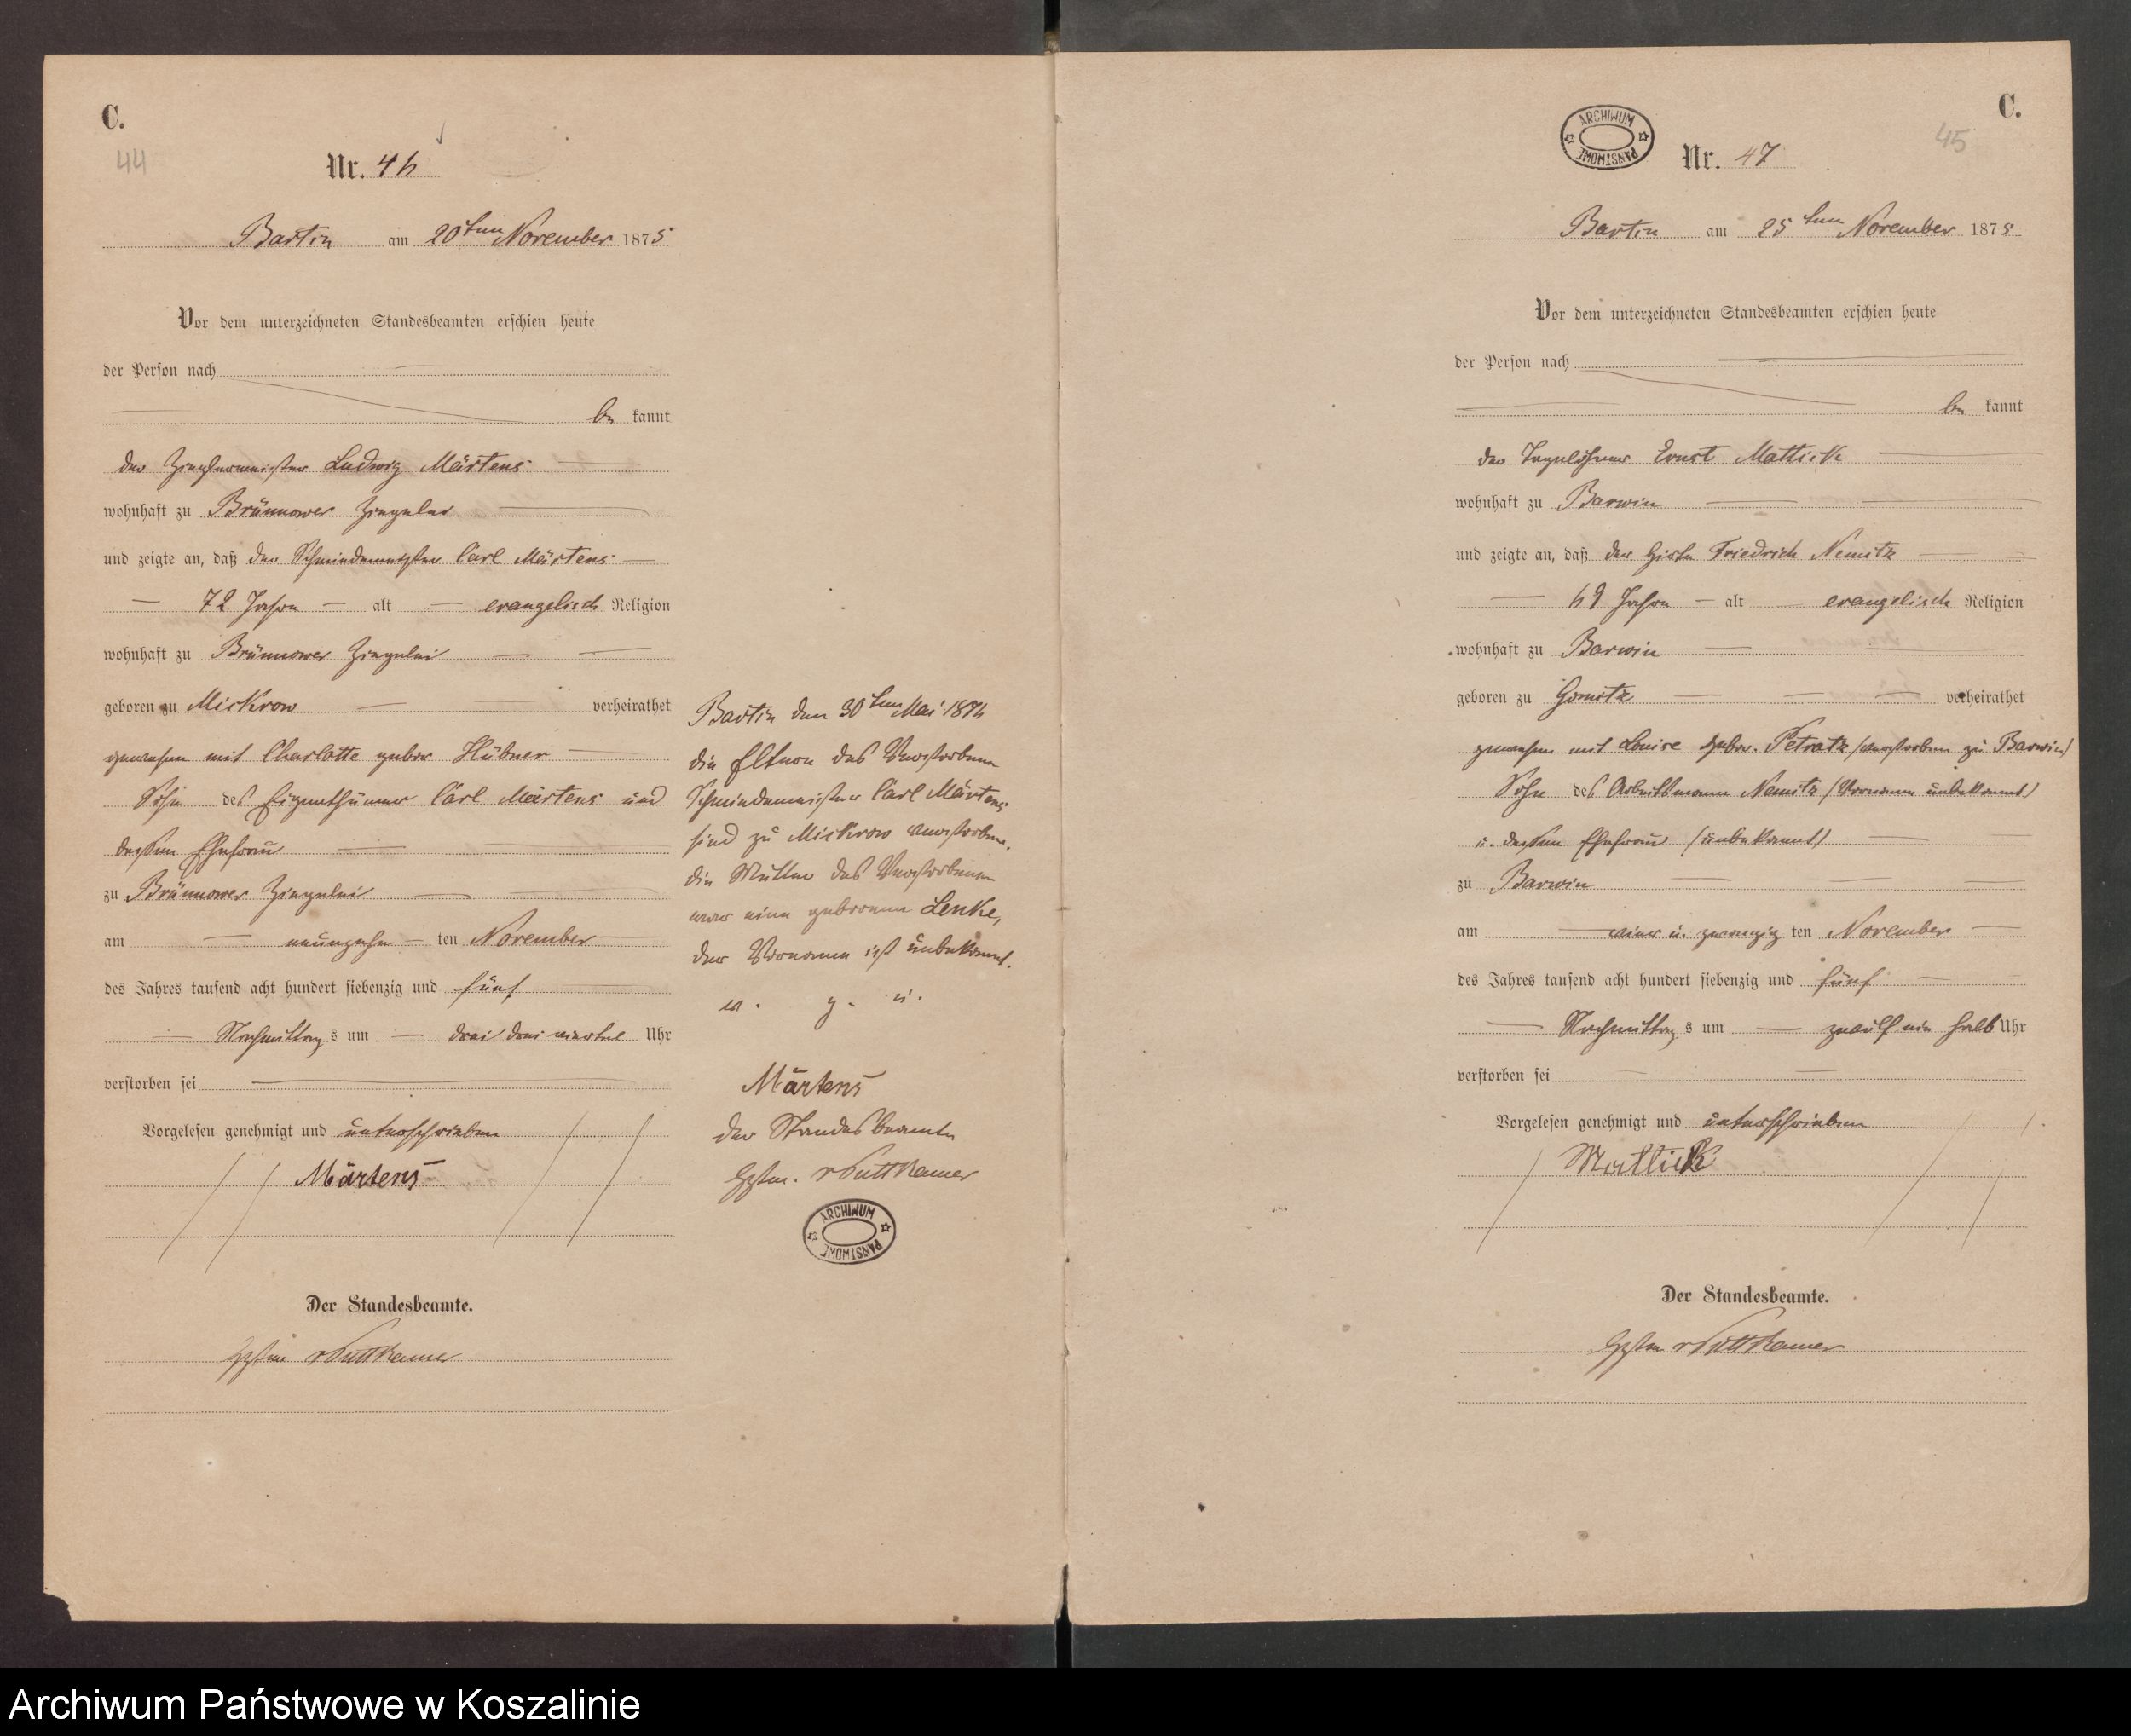 C.
44
Nr. 46
Bartin am 20ten November 1875
Vor dem unterzeichneten Standesbeamten erschien heute
der Person nach
be kannt
der Zieglermeister Ludwig Märtens
wohnhaft zu Brünnower Ziegelei
und zeigte an, daß der Schmiedemeister Carl Märtens
72 Jahre alt evangelisch Religion
wohnhaft zu Brünnower Ziegelei
geboren zu Mickrow verheirathet
gewesen mit Charlotte gebor Hübner
Sohn des Eigenthümer Carl Märtens und
dessen Ehefrau
zu Brünnower Ziegelei
am neunzehn ten November
des Jahres tausend acht hundert siebenzig und fünf
Nachmittag s um drei drei viertel Uhr
verstorben sei
Vorgelesen genehmigt und unterschrieben
Märtens
Der Standesbeamte.
vPuttkamer
Bartin den 30ten Mai 1876
die Eltern des Verstorbenen
Schmiedemeister Carl Märtens
sind zu Mickrow verstorben.
die Mutter des Verstorbenen
war eine geborene Lenke,
der Vorname ist unbekannt.
v. g. u.
Märtens
der Standesbeamte
vPuttkamer
ARCHIWUM PAŃSTWOWE
C.
45
ARCHIWUM PAŃSTWOWE
Nr. 47
Bartin am 25ten November 1875
Vor dem unterzeichneten Standesbeamten erschien heute
der Person nach
be kannt
der Tagelöhner Ernst Mattick
wohnhaft zu Barwin
und zeigte an, daß der Hirte Friedrich Nemitz
69 Jahre alt evangelisch Religion
wohnhaft zu Barwin
geboren zu Gumitz verheirathet
gewesen mit Louise gebor. Petratz (verstorben zu Barwin)
Sohn des Arbeitsmann Nemitz (Vornamen unbekannt)
u. dessen Ehefrau (unbekannt)
zu Barwin
am vier u. zwanzig ten November
des Jahres tausend acht hundert siebenzig und fünf
Nachmittag s um zwölf ein halb Uhr
verstorben sei
Vorgelesen genehmigt und unterschrieben
Mattick
Der Standesbeamte.
vPuttkamer
Archiwum Państwowe w Koszalinie